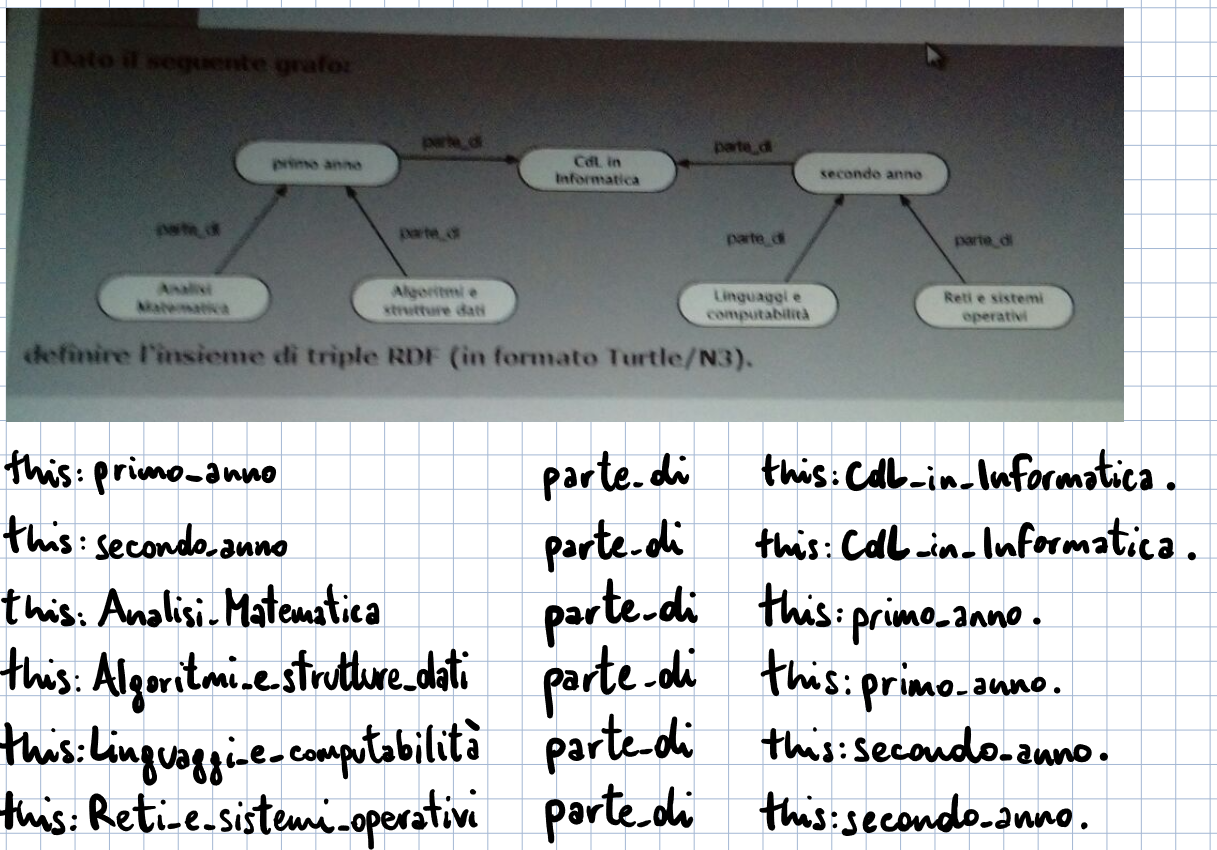 Dato il seguente grafo:
parte_di
parte_di
primo anno
CdL in
Informatica
secondo anno
parte_di
parte_di
parte_di
parte_di
Analisi
Matematica
Algoritmi e
strutture dati
Linguaggi e
computabilità
Reti e sistemi
operativi
definire l'insieme di triple RDF (in formato Turtle/N3).
this: primo_anno parte_di this: CdL_in_Informatica.
this: secondo_anno parte_di this: CdL_in_Informatica.
this: Analisi_Matematica parte_di this: primo_anno.
this: Algoritmi_e_strutture_dati parte_di this: primo_anno.
this: Linguaggi_e_computabilità parte_di this: secondo_anno.
this: Reti_e_sistemi_operativi parte_di this: secondo_anno.